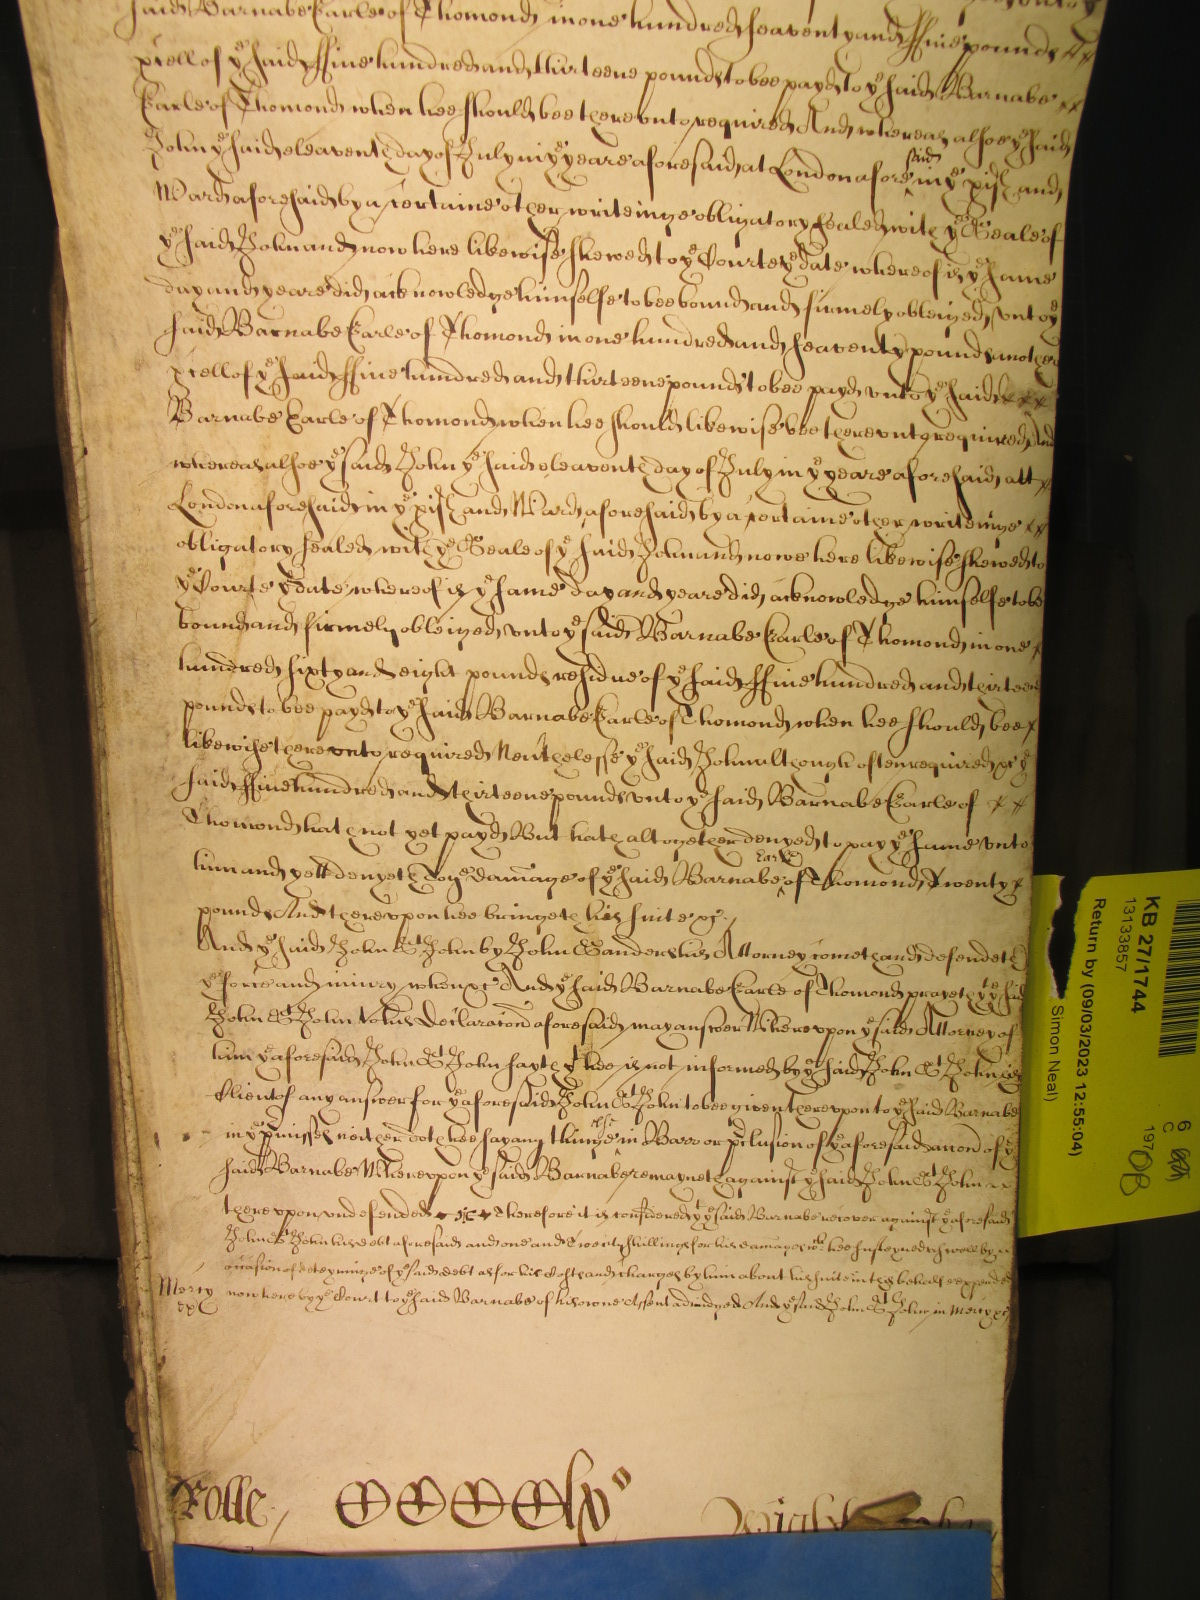 said Barnabe Earle of Thomond in one hundred seaventy and ffive pounds
pcell of ye said ffive hundred and thirteene pounds to bee payd to ye said Barnabe
Earle of Thomond when hee should bee thereunto required And whereas alsoe ye said
John ye said eleaventh day of July in ye yeare aforesaid at London afore said in ye pish and
Ward aforesaid by a certaine other writeinge obligatory sealed with ye Seale of
ye said John and now here likewise shewed to ye Courte ye date whereof is ye same
day and yeare did acknowledge himselfe to bee bound and firmely obleiged unto ye
said Barnabe Earle of Thomond in one hundred and seaventy pounds another
pcell of ye said ffive hundred and thirteene pounds to bee payd unto ye said
Barnabe Earle of Thomond when hee should likewise bee thereunto required And
whereas alsoe ye said John ye said eleaventh day of July in ye yeare aforesaid att
London aforesaid in ye pish and Ward aforesaid by a certaine other writeinge
obligatory sealed with ye Seale of ye said John and nowe here likewise shewed to
ye Courte ye date whereof is ye same day and yeare did acknowledge himselfe to be
bound and firmely obleiged unto ye said Barnabe Earle of Thomond in one
hundred sixty and eight pounds residue of ye said ffive hundred and thirteene
pounds to bee payd to ye said Barnabe Earle of Thomond when hee should bee
likewise thereunto required Neverthelesse ye said John although often required &c ye
said ffive hundred and thirteene pounds unto ye said Barnabe Earle of
Thomond hath not yet payd But hath altogether denyed to pay ye same unto
him and yett denyeth To ye damage of ye said Barnabe Earle of Thomond Twenty
pounds And thereupon hee bringeth his suite &c
And ye said John St John by John Sanders his Attorney cometh and defendeth
ye force and iniury when &c And ye said Barnabe Earle of Thomond prayeth yt ye said
John St John to his Declaracon aforesaid may answer Whereupon ye said Attorney of
him ye aforesaid John St John sayth yt hee is not informed by ye said John St John his
Client of any answer for ye aforesaid John St John to bee given thereupon to ye said Barnabe
in ye pmisses neither doth hee say any thinge else in Barr or pclusion of ye aforesaid accon of ye
said Barnabe Whereupon ye said Barnabe remayneth against ye said John St John
thereupon undefended &c Therefore it is considered yt ye said Barnabe recover against ye aforesaid
John St John his debt aforesaid and one and Twenty shillings for his damages wch hee susteyned as well by
occasion of deteyninge of ye said debt as for his Costs and charges by him about his suite in this behalfe expended
Mercy now here by ye Court to ye said Barnabe of his owne Assent adiudged And ye said John St John in Mercy &c
Rolle
KB 27/1744
13133857
Return by (09/03/2023 12:55:04)
Simon Neal)
6
C